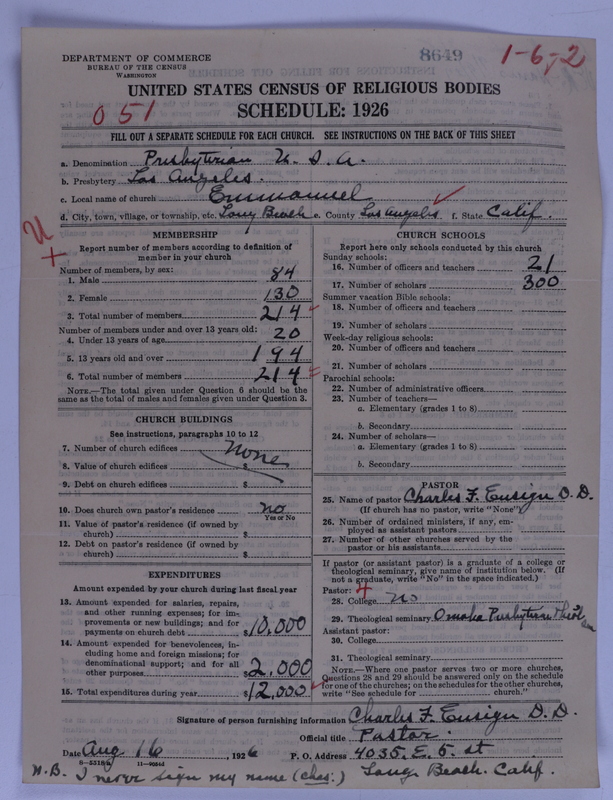 8649
1-6-2
DEPARTMENT OF COMMERCE
BUREAU OF THE CENSUS
WASHINGTON
UNITED STATES CENSUS OF RELIGIOUS BODIES
051
SCHEDULE: 1926
FILL OUT A SEPARATE SCHEDULE FOR EACH CHURCH. SEE INSTRUCTIONS ON THE BACK OF THIS SHEET
a. Denomination Presbyterian U. S. A.
b. Presbytery Los Angeles.
c. Local name of church Emmanuel
d. City, town, village, or township, etc. Long Beach e. County Los Angeles. f. State Calif.
U
+
MEMBERSHIP
Report number of members according to definition of
member in your church
Number of members, by sex:
1. Male 84
2. Female 130
3. Total number of members 214
Number of members under and over 13 years old:
4. Under 13 years of age 20
5. 13 years old and over 194
6. Total number of members 214
NOTE.—The total given under Question 6 should be the
same as the total of males and females given under Question 3.
CHURCH BUILDINGS
See instructions, paragraphs 10 to 12
7. Number of church edifices None
8. Value of church edifices $
9. Debt on church edifices $
10. Does church own pastor's residence no
Yes or No
11. Value of pastor's residence (if owned by
church) $
12. Debt on pastor's residence (if owned by
church) $
EXPENDITURES
Amount expended by your church during last fiscal year
13. Amount expended for salaries, repairs,
and other running expenses; for im-
provements or new buildings; and for
payments on church debt $10,000
14. Amount expended for benevolences, in-
cluding home and foreign missions; for
denominational support; and for all
other purposes $2,000
15. Total expenditures during year $12,000
CHURCH SCHOOLS
Report here only schools conducted by this church
Sunday schools:
16. Number of officers and teachers 21
17. Number of scholars 300
Summer vacation Bible schools:
18. Number of officers and teachers
19. Number of scholars
Week-day religious schools:
20. Number of officers and teachers
21. Number of scholars
Parochial schools:
22. Number of administrative officers
23. Number of teachers—
a. Elementary (grades 1 to 8)
b. Secondary
24. Number of scholars—
a. Elementary (grades 1 to 8)
b. Secondary
PASTOR
25. Name of pastor Charles F. Ensign D. D.
(If church has no pastor, write "None")
26. Number of ordained ministers, if any, em-
ployed as assistant pastors
27. Number of other churches served by the
pastor or his assistants
If pastor (or assistant pastor) is a graduate of a college or
theological seminary, give name of institution below. (If
not a graduate, write "No" in the space indicated.)
Pastor: 4
28. College no
29. Theological seminary Omaha Presbyterian Theol Sem
Assistant pastor:
30. College
31. Theological seminary
NOTE.—Where one pastor serves two or more churches,
Questions 28 and 29 should be answered only on the schedule
for one of the churches; on the schedules for the other churches,
write "See schedule for church."
Signature of person furnishing information Charles F. Ensign D. D.
Official title Pastor.
Date Aug 16, 1926 P. O. Address 4035. E. 5. st
N.B. I never sign my name (Chas.) Long Beach. Calif.